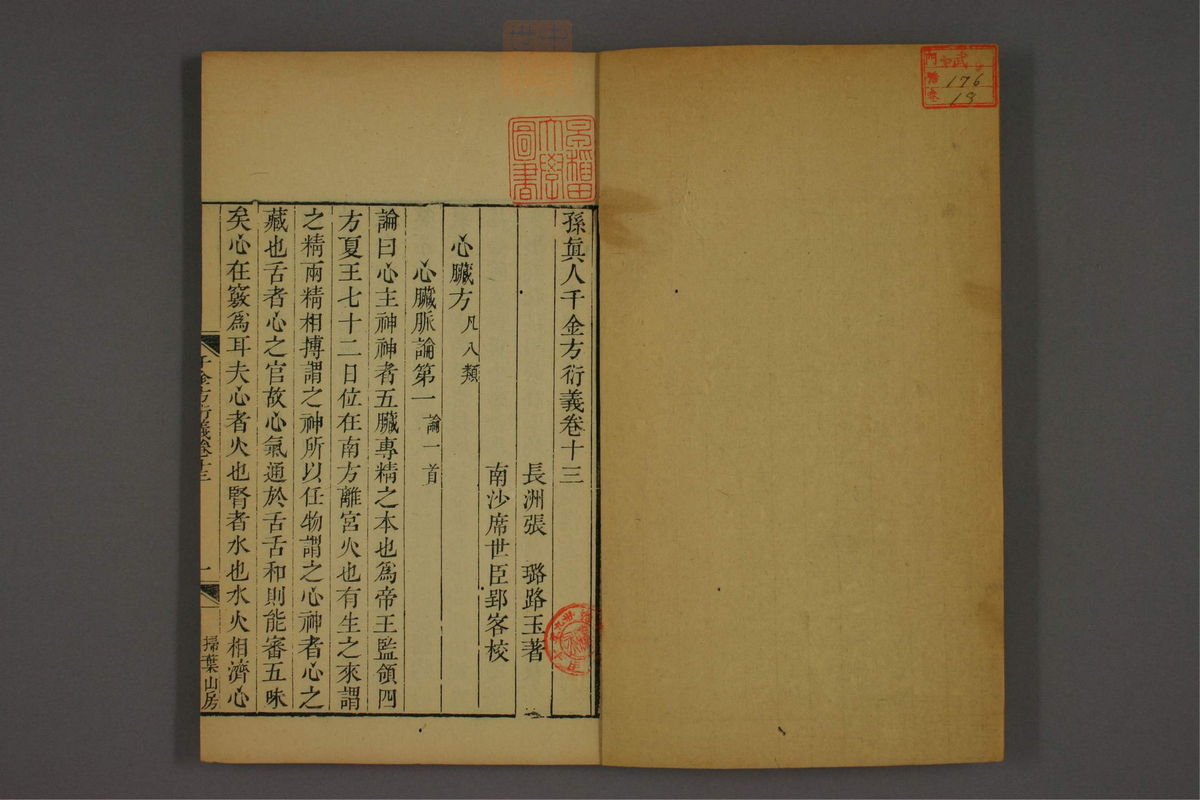 孫眞人千金方衍義卷十三
長洲張　璐路玉著
南沙席世臣郢客校
心臟方凡八類
心臟脈論第一論一首
論曰心主神神者五臟專精之本也爲帝王監領四
方夏王七十二日位在南方離宮火也有生之來謂
之精兩精相搏謂之神所以任物謂之心神者心之
藏也舌者心之官故心氣通於舌舌和則能審五味
矣心在竅爲耳夫心者火也腎者水也水火相濟心
千金方衍義卷十三
一
掃葉山房
早稲田大學圖書
武
門
號
卷
176
18